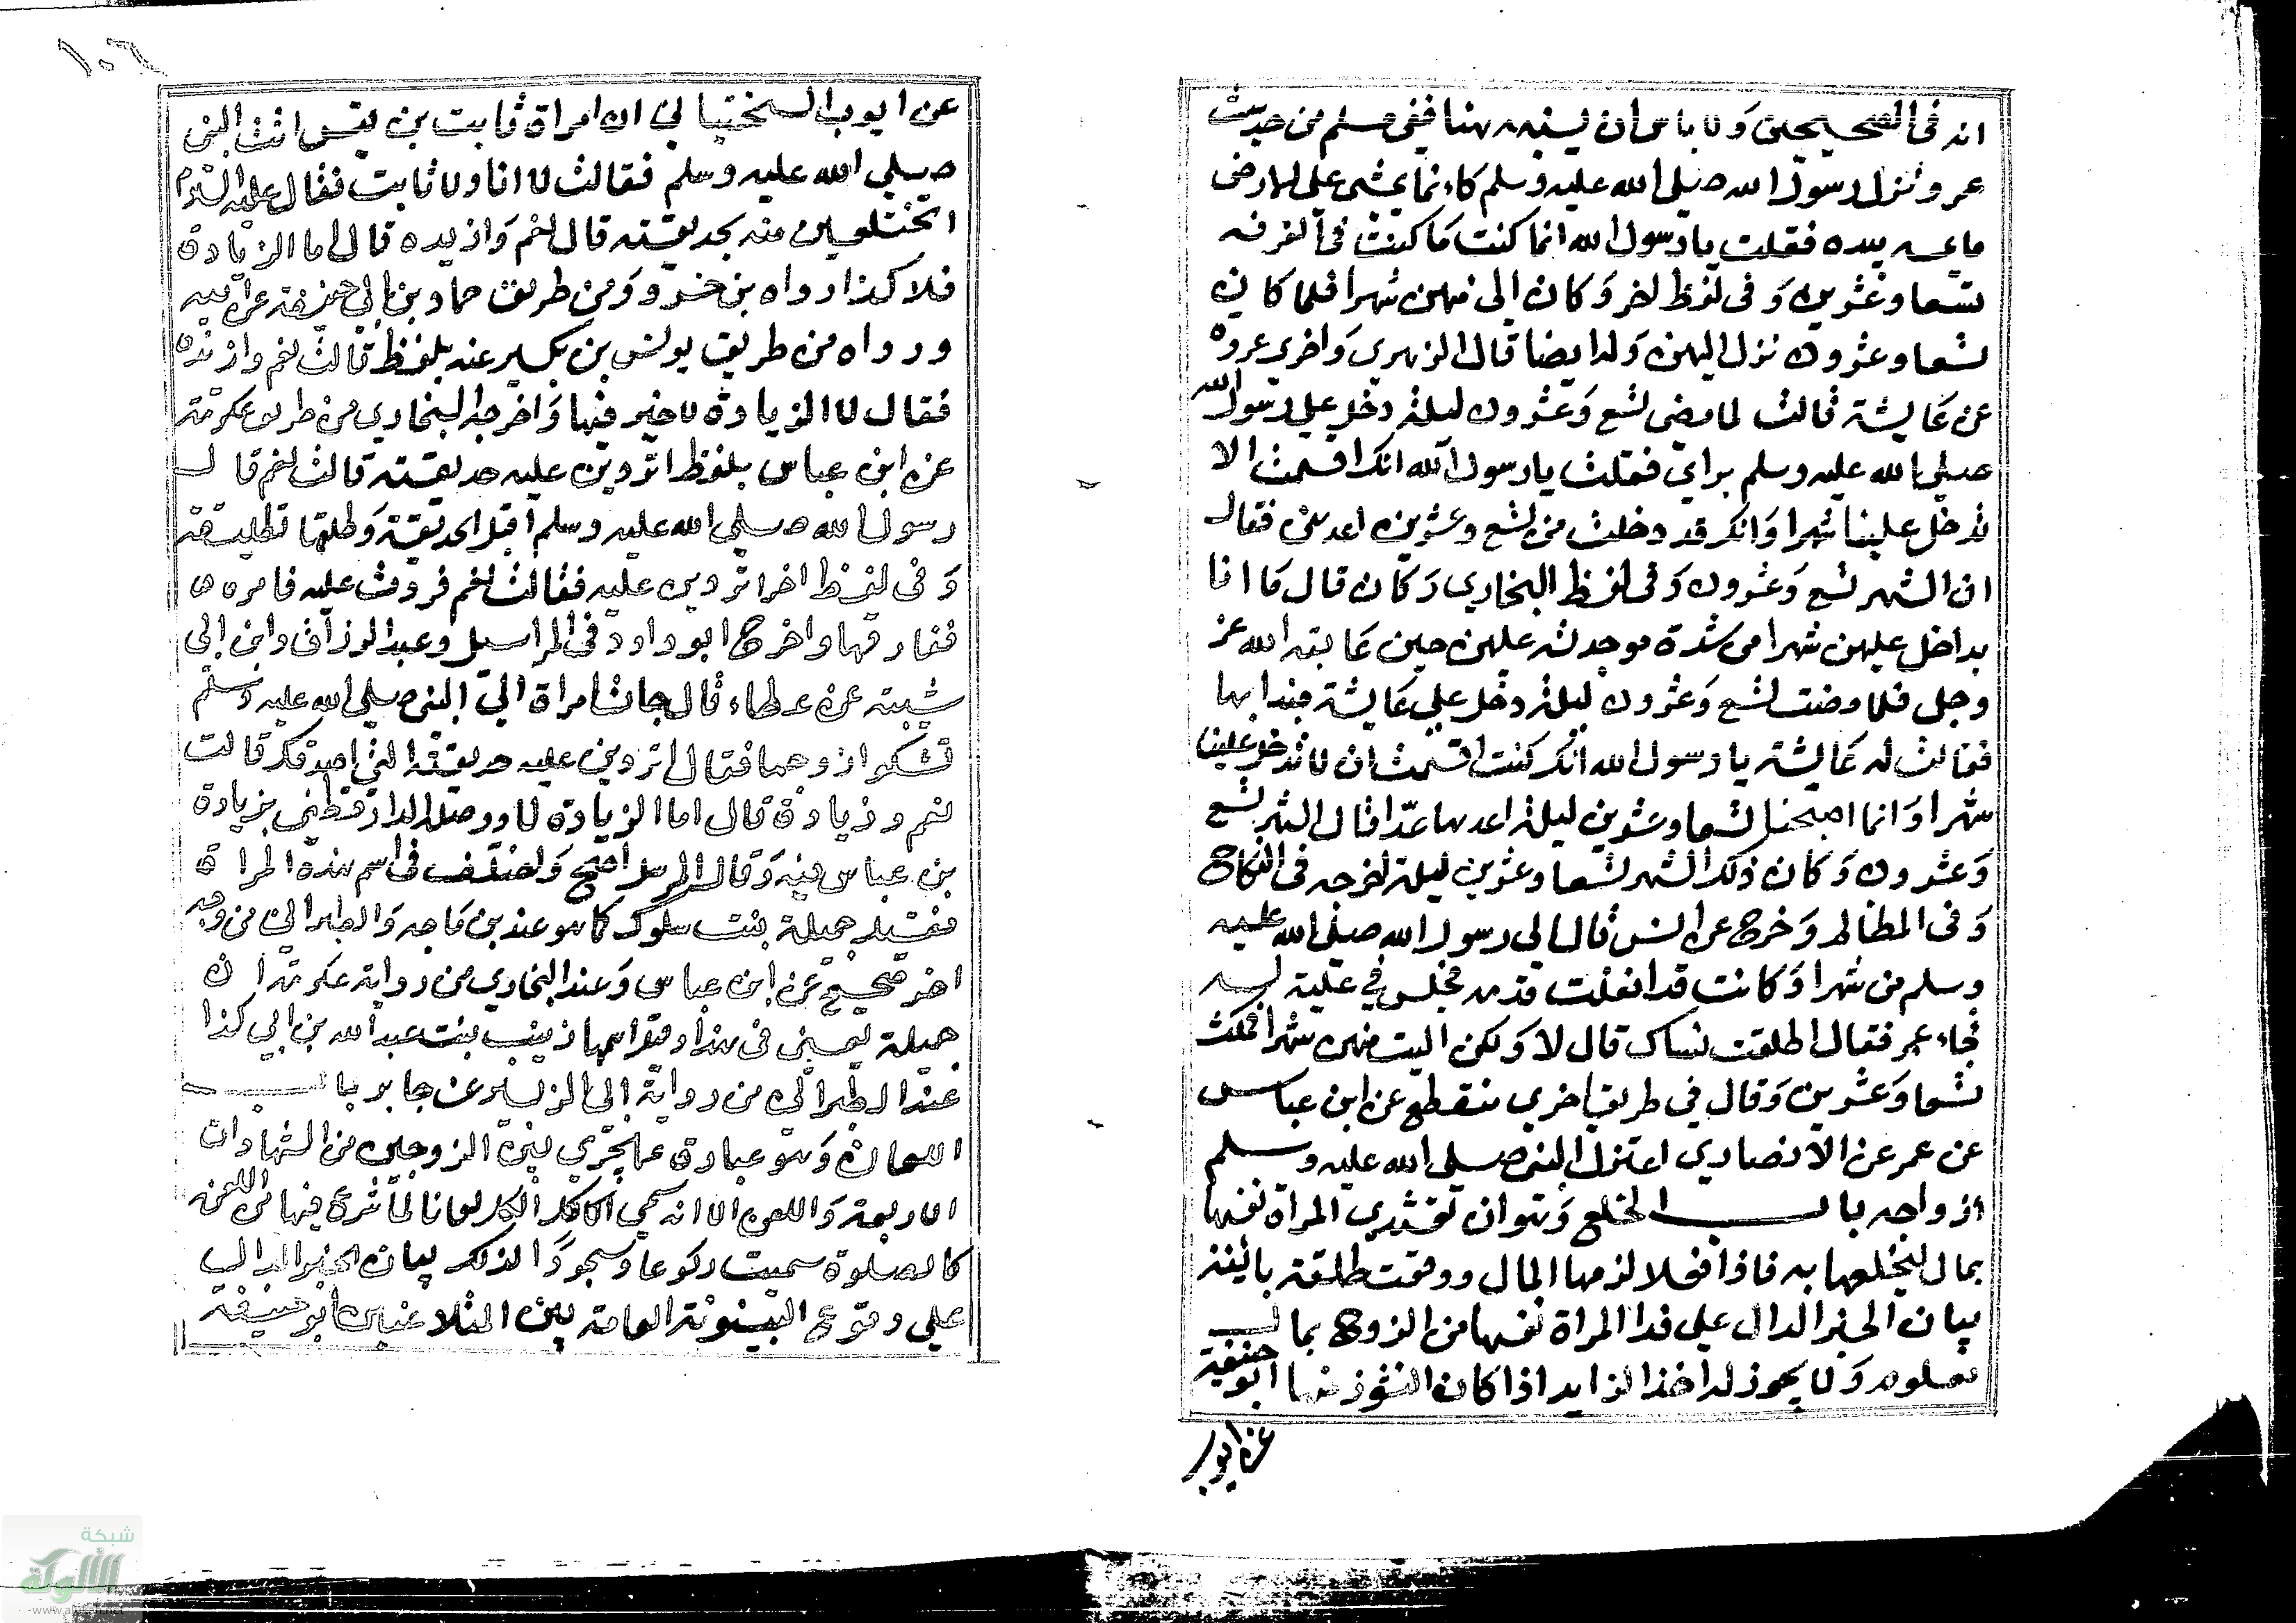 انه فى الصحيحين ولا باس ان ينبه هنا ففى مسلم من حديث
عمر ونزل رسول الله صلى الله عليه وسلم كانما يمشى على الارض
ما يمسه بيده فقلت يا رسول الله انما كنت ما كنت فى الغرفه
تسعا وعشرين وفى لفظ اخر وكان الى منهن شهرا فلما كان
تسعا وعشرون نزل اليهن وله ايضا قال الزهرى واخبرى عروه
عن عايشة قالت لما مضى تسع وعشرون ليلة دخل على رسول الله
صلى الله عليه وسلم براى فقلت يا رسول الله انك اقسمت الا
تدخل علينا شهرا وانك قد دخلت من تسع وعشرين اعدهن فقال
ان الشهر تسع وعشرون وفى لفظ البخارى وكان قال ما انا
بداخل عليهن شهرا من شدة موجدته عليهن حين عاتبه الله عز
وجل فلما مضت تسع وعشرون ليلة دخل على عايشة فبدا بها
فقالت له عايشة يا رسول الله انك كنت اقسمت ان لا تدخل علينا
شهرا وانما اصبحت تسعا وعشرين ليلة اعدها عدا قال الشهر تسع
وعشرون وكان ذلك الشهر تسعا وعشرين ليلة اخرجه فى النكاح
وفى المظالم وخرج عن انس قال الى رسول الله صلى الله عليه
وسلم من شهرا وكانت قد انفلت قدمه فجلس فى علية له
فجاء عمر فقال اطلقت نساك قال لا ولكن اليت منهن شهرا فمكث
تسعا وعشرين وقال فى طريق اخرى منقطع عن ابن عباس
عن عمر عن الانصارى اعتزل النبى صلى الله عليه وسلم
ازواجه باب الخلع وهو ان تفتدى المراة نفسها
بمال ليخلعها به فاذا فعلا لزمها المال ووقعت طلقة باينة
بيان الخبر الدال على فدا المراة نفسها من الزوج بما
معلوم ولا يجوز له اخذ الزايد اذا كان النشوز منها ابو حنيفة
عن ايوب
١٠٦
عن ايوب السختيانى ان امراة ثابت بن قيس اتت النبى
صلى الله عليه وسلم فقالت لا انا ولا ثابت فقال عليه السلام
اتختلعين منه بحديقته قال نعم وازيده قال اما الزيادة
فلا كذا رواه بن خسرو ومن طريق حماد بن ابى حنيفة عن ابيه
ورواه من طريق يونس بن بكير عنه بلفظ قالت نعم وازيده
فقال لا الزيادة لا خير فيها واخرجه البخارى من طريق عكرمة
عن ابن عباس بلفظ اتردين عليه حديقته قالت نعم قال
رسول الله صلى الله عليه وسلم اقبل الحديقة وطلقها تطليقة
وفى لفظ اخر اتردين عليه فقالت نعم فردت عليه فامره
ففارقها واخرج ابو داود فى المراسيل وعبد الرزاق وابن ابى
شيبة عن عطاء قال جات امراة الى النبى صلى الله عليه وسلم
تشكو زوجها فقال اتردين عليه حديقته التى اصدقك قالت
نعم وزيادة قال اما الزيادة لا ووصله الدارقطنى بزيادة
بن عباس فيه وقال المرسل اصح واختلف فى اسم هذه المراة
فقيل جميلة بنت سلول كما هو عند بن ماجه والطبرانى من وجه
اخر صحيح عن ابن عباس وعند البخارى من رواية عكرمة ان
جميلة يعنى فى هذا وقد اسمها زينب بنت عبد الله بن ابى كذا
عند الطبرانى من رواية ابى الزبير عن جابر باب
اللعان وهو عبارة عما يجرى بين الزوجين من الشهادات
الاربعة واللعن الا انه سمى الكل لعانا لما شرع فيها من اللعن
كالصلوة سميت ركوعا وسجودا لذلك بيان الخبر الدال
على وقوع البينونة العامة بين المتلاعنين ابو حنيفة
شبكة
الألوكة
www.alukah.net